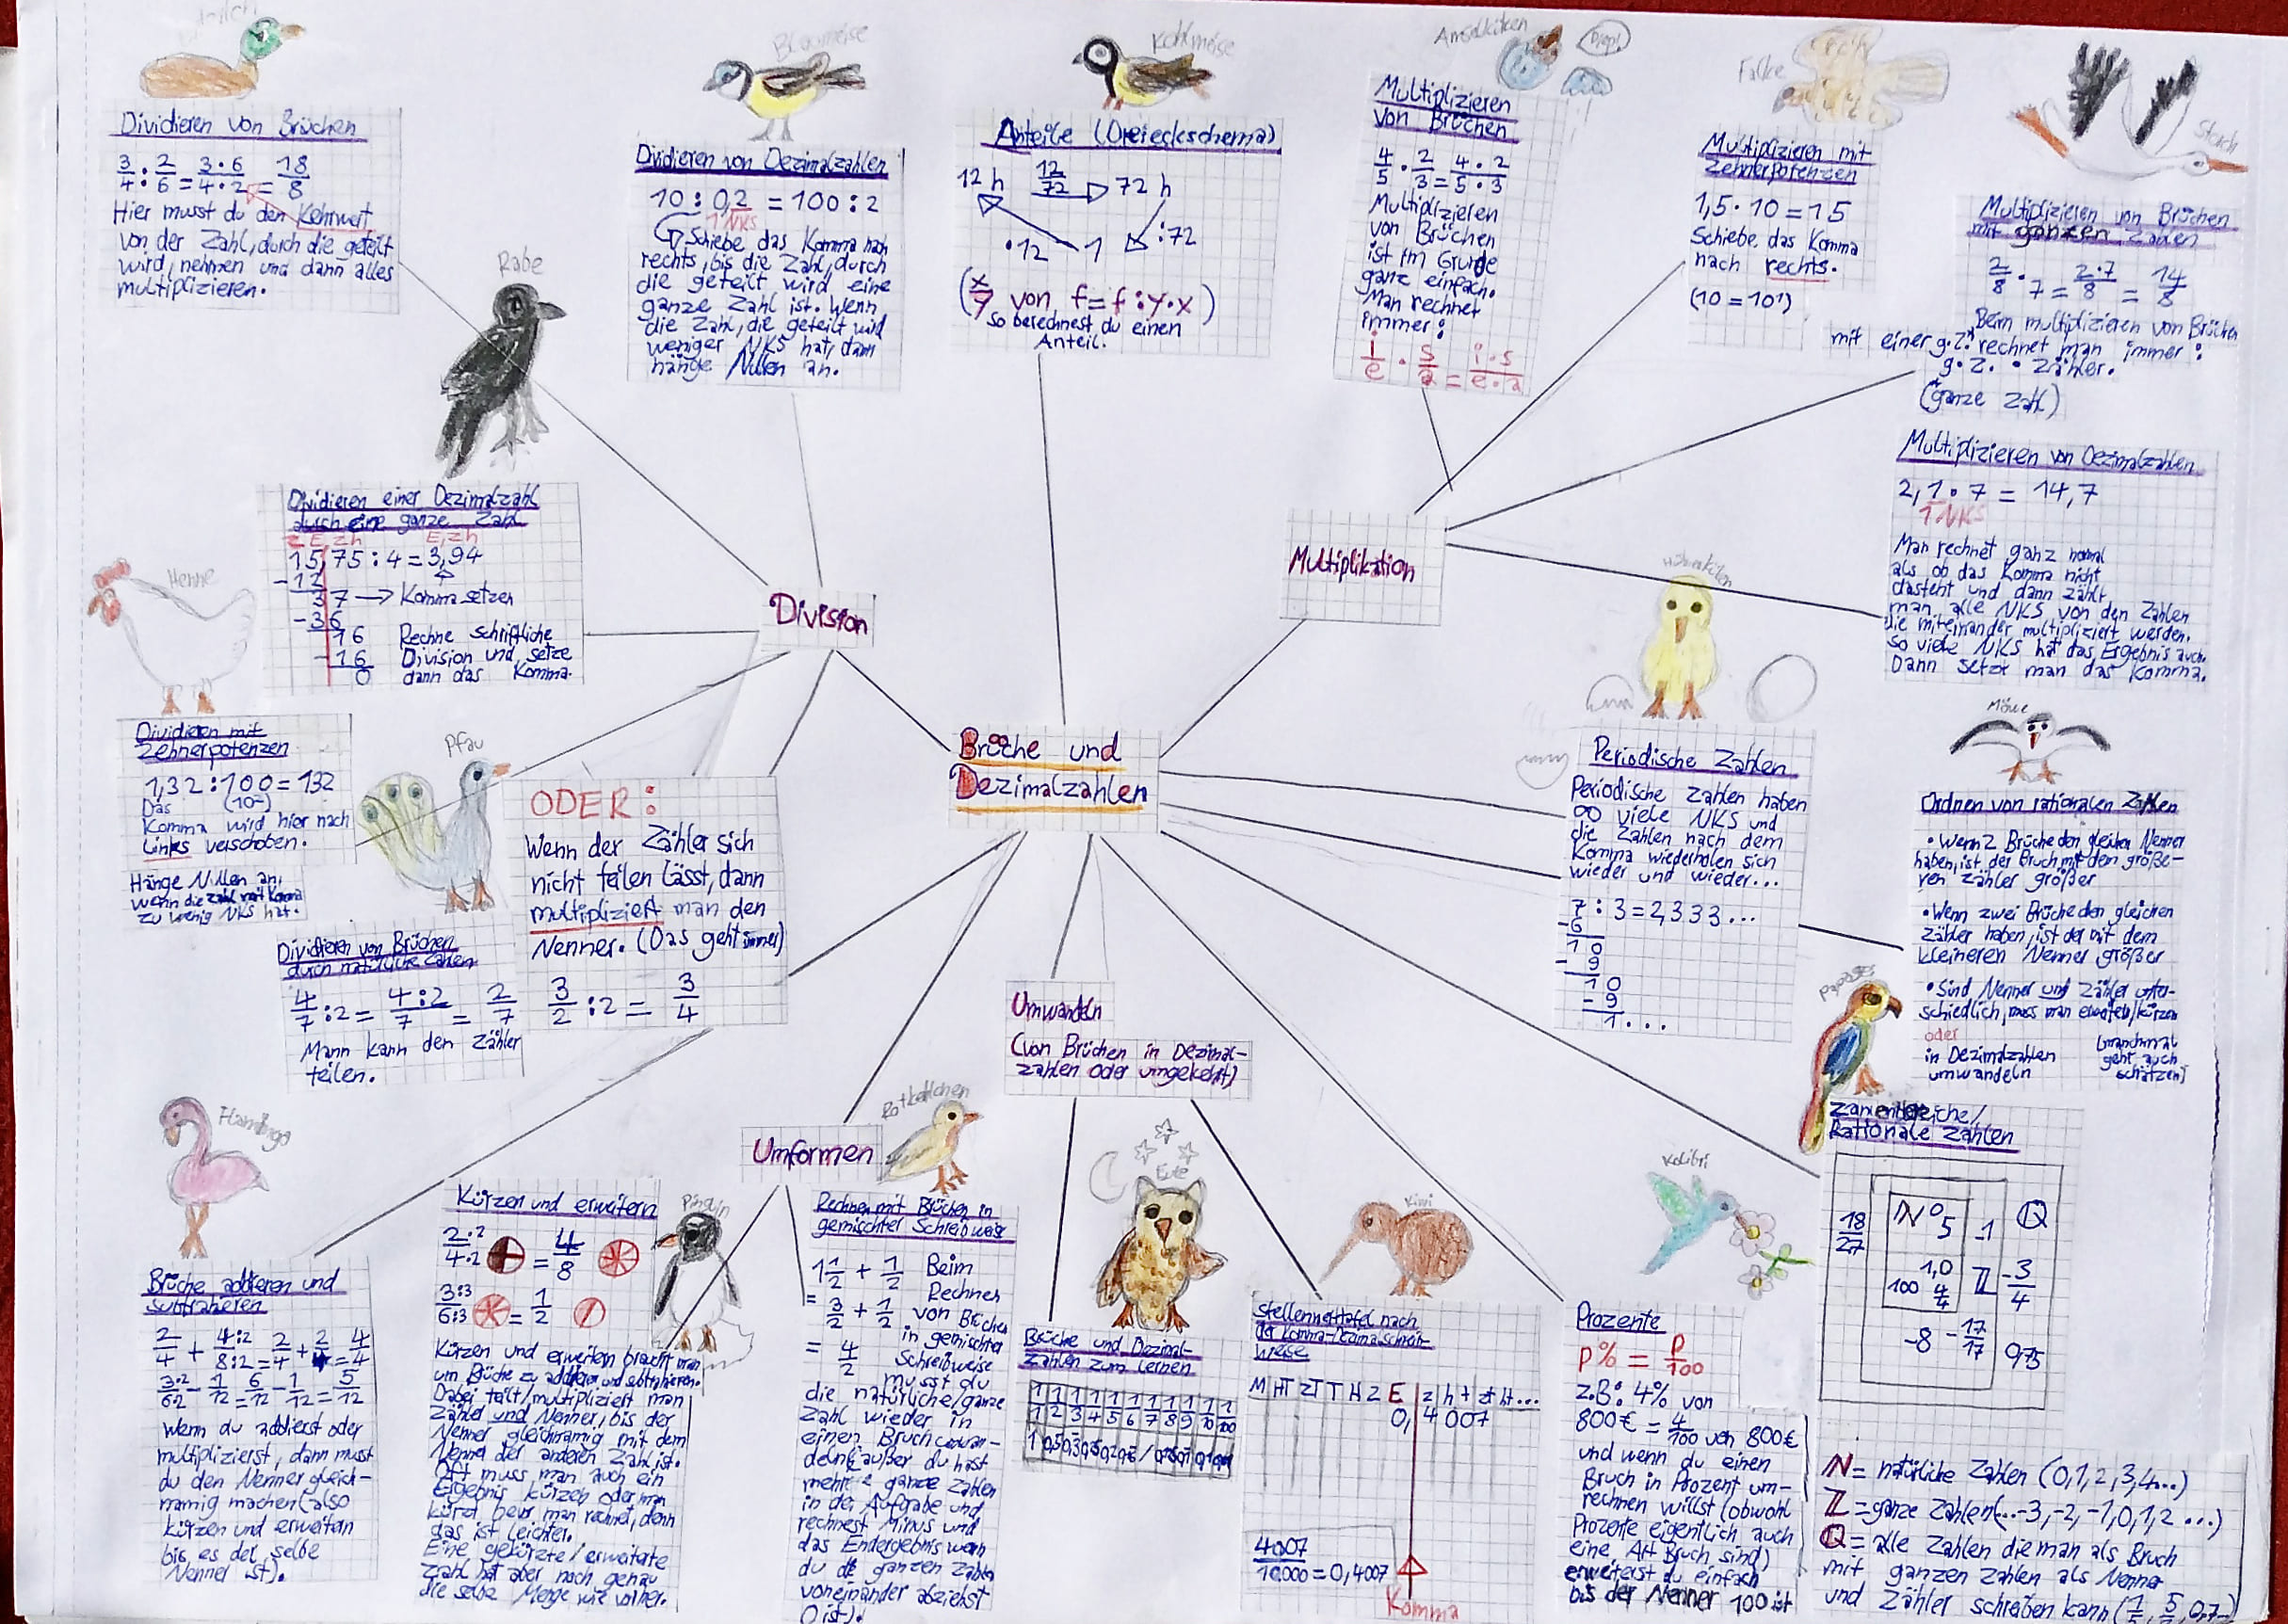 Dividieren von Brüchen
3/4 : 2/6 = 3·6/4·2 = 18/8
Hier musst du den Kehrwert
von der Zahl, durch die geteilt
wird, nehmen und dann alles
multiplizieren.
Blaumeise
Dividieren von Dezimalzahlen
10 : 0,2 = 100 : 2
1 NKS
Schiebe das Komma nach
rechts, bis die Zahl, durch
die geteilt wird eine
ganze Zahl ist. Wenn
die Zahl, die geteilt wird
weniger NKS hat, dann
hänge Nullen an.
Kohlmeise
Anteile (Dreieckschema)
12 h 12/72 72 h
·12 1 :72
(x/y von f = f : y · x)
so berechnest du einen
Anteil.
Piep!
Multiplizieren
von Brüchen
4/5 · 2/3 = 4·2/5·3
Multiplizieren
von Brüchen
ist im Grunde
ganz einfach.
Man rechnet
immer:
i/e · s/a = i·s/e·a
Falke
Multiplizieren mit
Zehnerpotenzen
1,5 · 10 = 15
Schiebe das Komma
nach rechts.
(10 = 10¹)
Storch
Multiplizieren von Brüchen
mit ganzen Zahlen
2/8 · 7 = 2·7/8 = 14/8
Beim multiplizieren von Brüchen
mit einer g.Z.* rechnet man immer:
g.Z. · Zähler.
(*ganze Zahl)
Multiplizieren von Dezimalzahlen
2,1 · 7 = 14,7
1 NKS
Man rechnet ganz normal
als ob das Komma nicht
dasteht und dann zählt
man alle NKS von den Zahlen
die miteinander multipliziert werden.
so viele NKS hat das Ergebnis auch.
Dann setzt man das Komma.
Rabe
Dividieren einer Dezimalzahl
durch eine ganze Zahl
Z E, z h E, z h
15,75 : 4 = 3,94
-12
37 → Komma setzen
-36
16 Rechne schriftliche
-16 Division und setze
0 dann das Komma.
Henne
Division
Multiplikation
Brüche und
Dezimalzahlen
Dividieren mit
Zehnerpotenzen
1,32 : 100 = 132
(10²)
Das
Komma wird hier nach
Links verschoben.
Hänge Nullen an,
wenn die Zahl vorm Komma
zu wenig NKS hat.
Pfau
ODER:
Wenn der Zähler sich
nicht teilen lässt, dann
multipliziert man den
Nenner. (Das geht immer)
3/2 : 2 = 3/4
Dividieren von Brüchen
durch natürliche Zahlen
4/7 : 2 = 4:2/7 = 2/7
Mann kann den Zähler
teilen.
Periodische Zahlen
Periodische Zahlen haben
∞ viele NKS und
die Zahlen nach dem
Komma wiederholen sich
wieder und wieder...
7 : 3 = 2,333...
-6
10
-9
10
-9
1...
Möwe
Ordnen von rationalen Zahlen
• Wenn 2 Brüche den gleichen Nenner
haben, ist der Bruch mit dem größe-
ren Zähler größer
• Wenn zwei Brüche den gleichen
Zähler haben, ist der mit dem
kleineren Nenner größer
• Sind Nenner und Zähler unter-
schiedlich, muss man erweitern/kürzen
oder
in Dezimalzahlen
umwandeln
(manchmal
geht auch
schätzen)
Papagei
Umwandeln
(von Brüchen in Dezimal-
zahlen oder umgekehrt)
Umformen
Rotkehlchen
Flamingo
Brüche addieren und
subtrahieren
2/4 + 4:2/8:2 = 2/4 + 2/4 = 4/4
3·2/6·2 - 1/12 = 6/12 - 1/12 = 5/12
Wenn du addierst oder
multiplizierst, dann musst
du den Nenner gleich-
namig machen (also
kürzen und erweitern
bis es der selbe
Nenner ist).
Kürzen und erweitern
2·2/4·2 = 4/8
3:3/6:3 = 1/2
Kürzen und erweitern braucht man
um Brüche zu addieren und subtrahieren.
Dabei teilt/multipliziert man
Zähler und Nenner, bis der
Nenner gleichnamig mit dem
Nenner der anderen Zahl ist.
Oft muss man auch ein
Ergebnis kürzen oder man
kürzt bevor man rechnet, denn
das ist leichter.
Eine gekürzte/erweiterte
Zahl hat aber noch genau
die selbe Menge wie vorher.
Pinguin
Rechnen mit Brüchen in
gemischter Schreibweise
1 1/2 + 1/2
= 3/2 + 1/2
= 4/2
Beim
Rechnen
von Brüchen
in gemischter
Schreibweise
musst du
die natürliche/ganze
Zahl wieder in
einen Bruch umwan-
deln (außer du hast
mehr ganze Zahlen
in der Aufgabe und
rechnest Minus und
das Endergebnis wenn
du die ganzen Zahlen
voneinander abziehst
0 ist).
Eule
Brüche und Dezimal-
zahlen zum Lernen
1/1 1/2 1/3 1/4 1/5 1/6 1/7 1/8 1/9 1/10 1/100
Kiwi
Stellenwerttafel nach
der Komma-Dezimalschreib-
weise
M HT ZT T H Z E z h t zt ht...
0,4007
4007/10000 = 0,4007
Komma
Kolibri
Prozente
p% = p/100
z.B: 4% von
800€ = 4/100 von 800€
und wenn du einen
Bruch in Prozent um-
rechnen willst (obwohl
Prozente eigentlich auch
eine Art Bruch sind)
erweiterst du einfach
bis der Nenner 100 ist
Zahlenbereiche/
Rationale Zahlen
18/27 N 0 5 -1 Q
1,0 100 4/4 Z -3/4
-8 -17/17 9,75
N = natürliche Zahlen (0,1,2,3,4...)
Z = ganze Zahlen (...-3,-2,-1,0,1,2...)
Q = alle Zahlen die man als Bruch
mit ganzen Zahlen als Nenner
und Zähler schreiben kann